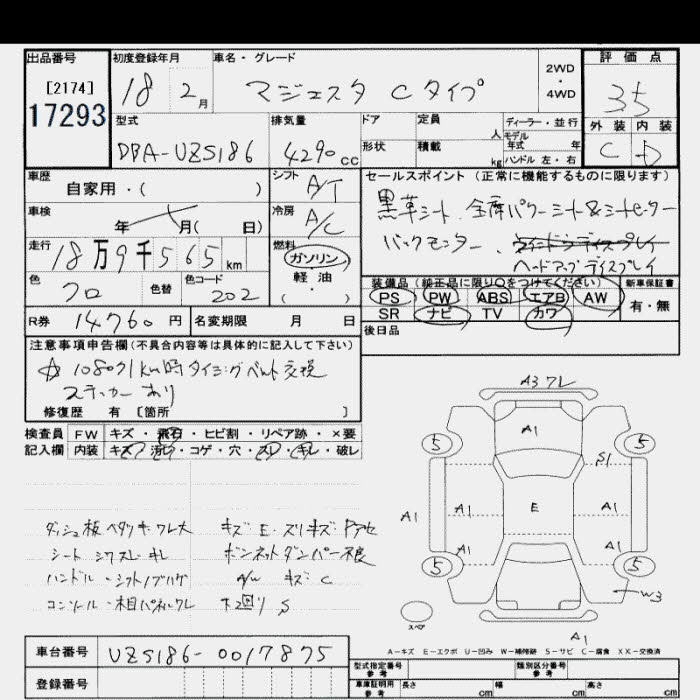 出品番号 初度登録年月 車名・グレード 2WD・4WD 評価点
[2174] 18 2月 マジェスタ Cタイプ 3.5
17293
型式 排気量 ドア 定員 人 ディーラー・並行 外装 内装
DBA-UZS186 4290cc 形状 積載 kg モデル年式 年 C D
ハンドル 左・右
車歴 自家用・( ) シフト A/T セールスポイント (正常に機能するものに限ります)
黒革シート.全席パワーシート&シートヒーター
車検 年 月( 日) 冷房 A/C
バックモニター.
走行 18万9千565km 燃料 ガソリン 軽油 ( ・ )
ヘッドアップディスプレイ
色 クロ 色替 色コード 202
装備品 (純正品に限り○をつけてください) 新車保証書
PS PW ABS エアB AW 有・無
SR ナビ TV カワ
R券 14760円 名変期限 月 日
後日品
注意事項申告欄(不具合内容等は具体的に記入して下さい)
☆108071km時タイミングベルト交換
ステッカーあり
修復歴 有 [箇所 ]
検査員 FW キズ・飛石・ヒビ割・リペア跡・×要
記入欄 内装 キズ・汚レ・コゲ・穴・スレ・キレ・破レ
A3 ワレ
A1
5 5
S1
A1 A1 E A1
A1 A1
5 5
W3
スペア
A1
ダッシュ板ベタツキ.ワレ大 キズ E・スリキズ
シート シワスレ・キレ ボンネットダンパー不良
ハンドル・シフトノブハゲ A/W キズ C
コンソール・木目パネルワレ 下回り S
A-キズ E-エクボ U-凹み W-補修跡 S-サビ C-腐食 XX-交換済
車台番号 UZS186-0017875
型式指定番号 参考 類別区分番号 参考
登録番号
車庫証明用 参考 長さ cm 幅 cm 高さ cm